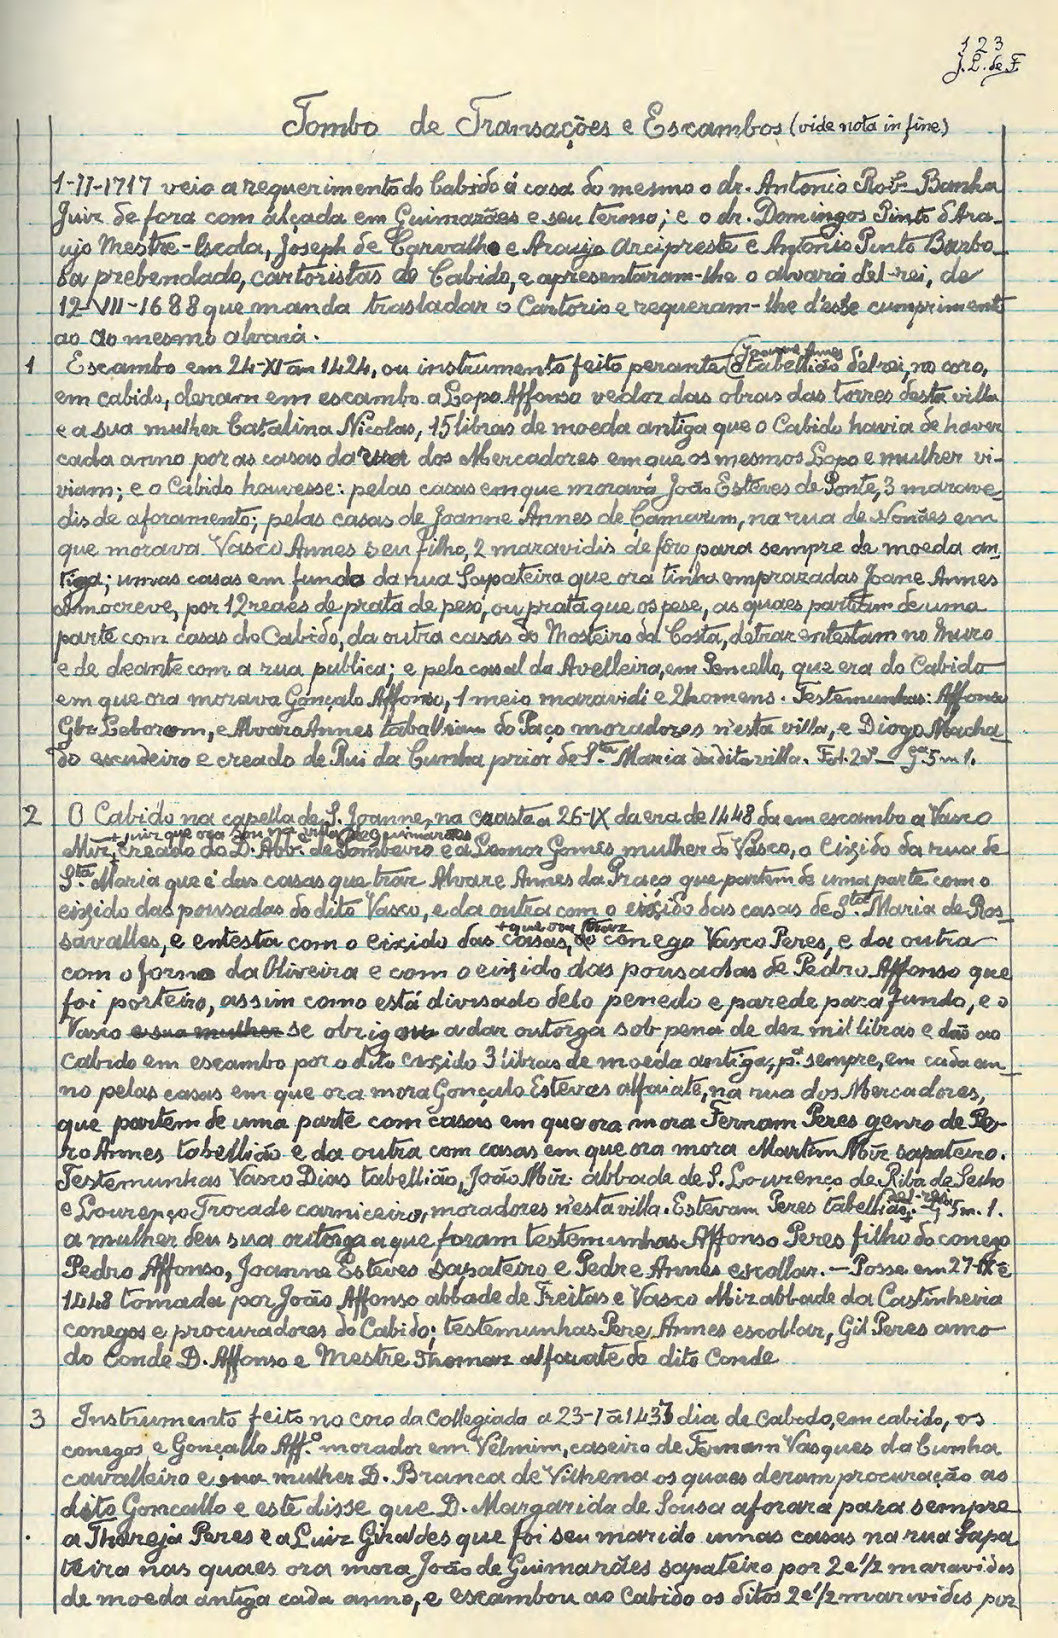 123
J. L. de F.
Tombo de Transações e Escambos (vide nota in fine)
1-II-1717 veio a requerimento do Cabido á casa do mesmo o dr. Antonio Roiz Banha
Juiz de fora com alçada em Guimarães e seu termo; e o dr. Domingos Pinto d'Ara-
ujo Mestre-Escola, Joseph de Carvalho e Araujo Arcipreste e Antonio Pinto Barbo-
sa prebendado, cartoristas do Cabido, e apresentaram-lhe o alvará d'el-rei, de
12-VII-1688 que manda trasladar o Cartorio e requeram-lhe d'esse cumpriment
ao ao mesmo alvará.
1 Escambo em 24-XI an 1424, ou instrumento feito perante Joanne Annes tabellião del rei, no coro,
em cabido, deram em escambo a Lopo Affonso vedor das obras das torres desta villa
e a sua mulher Catalina Nicolas, 15 libras de moeda antiga que o Cabido havia de haver
cada anno por as casas da rua dos Mercadores em que os mesmos Lopo e mulher vi-
viam; e o Cabido houvesse: pelas casas em que morava João Esteves de Ponte, 3 marave-
dis de aforamento; pelas casas de Joanne Annes de Camarim, na rua de Nonães em
que morava Vasco Annes seu filho, 2 maravidis de fôro para sempre de moeda an-
tiga; umas casas em fundo da rua Sapateira que ora tinha emprazadas Joane Annes
Almocreve, por 12 reaes de prata de peso, ou prata que os pese, as quaes partiam de uma
parte com casas do Cabido, da outra casas do Mosteiro da Costa, detraz entestam no muro
e de deante com a rua publica; e pelo casal da Avelleira, em Sencello, que era do Cabido
em que ora morava Gonçalo Affonso, 1 meio maravidi e 2 homens. Testemunhas: Affonso
Glz Leborom, e Alvaro Annes taballiam do Paço moradores n'esta villa, e Diogo Macha-
do escudeiro e creado de Rui da Cunha prior de S.ta Maria da dita villa. Fol. 2 v.º — g.ea 5 m 1.
2 O Cabido na capella de S. Joanne, na crasta a 26-IX da era de 1448 da em escambo a Vasco
+ juiz que ora sou na villa de Guimarães
Miz, creado do D. Abb. de Pombeiro e a Leonor Gomes mulher do Vasco, o eixido da rua de
S.ta Maria que é das casas que traz Alvare Annes da Praça que partem de uma parte com o
eixido das pousadas do dito Vasco, e da outra com o eixido das casas de S.ta Maria de Ros-
+ que ora traz
savalles, e entesta com o eixido das casas, do conego Vasco Peres, e da outra
com o forno da Oliveira e com o eixido das pousadas de Pedro Affonso que
foi porteiro, assim como está divisado delo penedo e parede para fundo, e o
Vasco e sua mulher se obrigou a dar outorga sob pena de dez mil libras e dão ao
Cabido em escambo por o dito eixido 3 libras de moeda antiga, p.ª sempre, em cada an-
no pelas casas em que ora mora Gonçalo Esteves alfaiate, na rua dos Mercadores,
que partem de uma parte com casas em que ora mora Fernam Peres genro de Pe-
ro Annes tabellião e da outra com casas em que ora mora Martim Miz sapateiro.
Testemunhas Vasco Dias tabellião, João Miz abbade de S. Lourenço de Riba de Selho
e Lourenço Trocado carniceiro, moradores n'esta villa. Estevam Peres tabellião del-rei. — g 5 m. 1.
a mulher deu sua outorga a que foram testemunhas Affonso Peres filho do conego
Pedro Affonso, Joanne Esteves sapateiro e Pedre Annes escollar. — Posse em 27-IX e
1448 tomada por João Affonso abbade de Freitas e Vasco Miz abbade da Castinheira
conegos e procuradores do Cabido; testemunhas Pere Annes escollar, Gil Peres amo
do Conde D. Affonso e Mestre Thomaz alfaiate do dito Conde
3 Instrumento feito no coro da Collegiada a 23-I ã 1437 dia de Cabodo, em cabido, os
conegos e Gonçallo Aff.º morador em Vélmim, caseiro de Fernam Vasques da Cunha
cavalleiro e sua mulher D. Branca de Vilhena os quaes deram procuração ao
dito Goncallo e este disse que D. Margarida de Sousa aforara para sempre
a Thareja Peres e a Luiz Giraldes que foi seu marido umas casas na rua Sapa
teira nas quaes ora mora João de Guimarães sapateiro por 2 e 1/2 maravides
de moeda antiga cada anno, e escambou ao Cabido os ditos 2 e 1/2 maravidis por